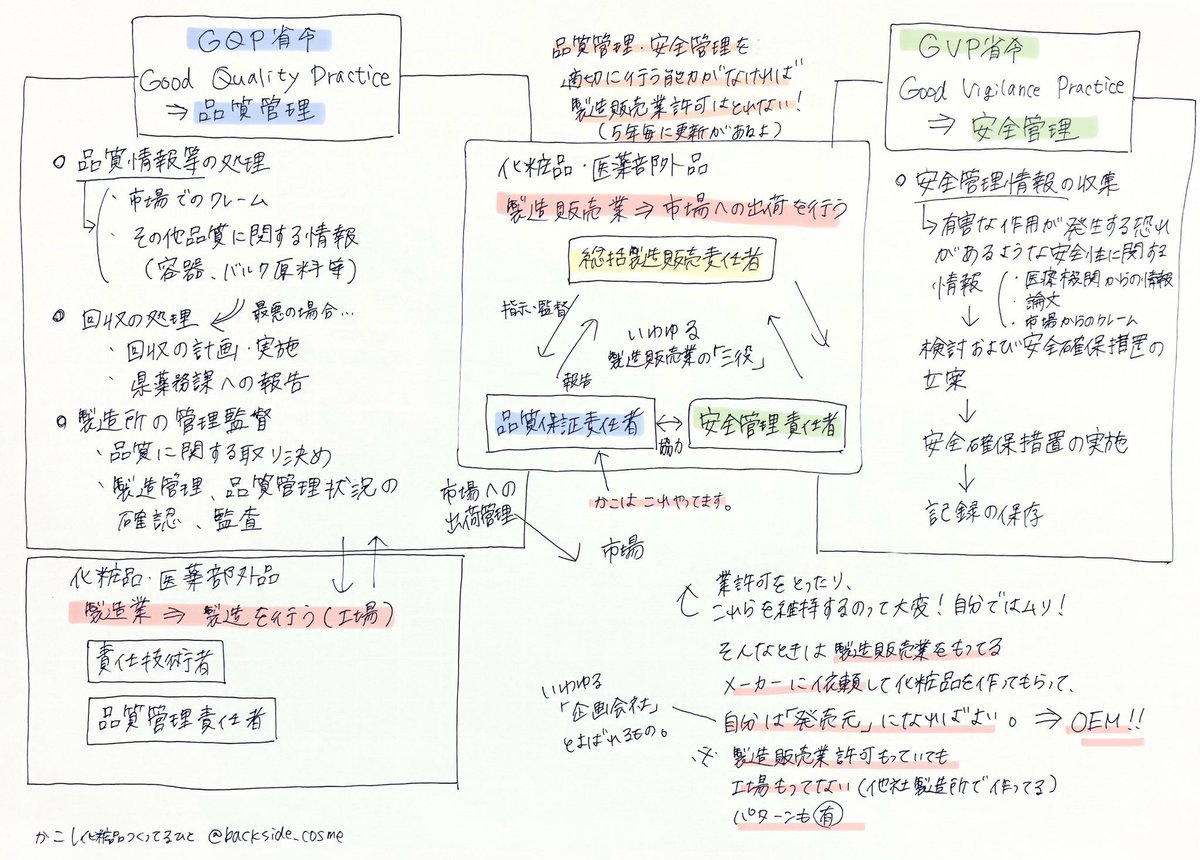 GQP省令
Good Quality Practice
⇒ 品質管理
○ 品質情報等の処理
・市場でのクレーム
・その他品質に関する情報
(容器、バルク原料等)
○ 回収の処理
最悪の場合…
・回収の計画・実施
・県薬務課への報告
○ 製造所の管理監督
・品質に関する取り決め
・製造管理、品質管理状況の
確認、監査
品質管理・安全管理を
適切に行う能力がなければ
製造販売業許可はとれない!
(5年毎に更新があるよ)
化粧品・医薬部外品
製造販売業 ⇒ 市場への出荷を行う
総括製造販売責任者
指示・監督
報告
いわゆる
製造販売業の「三役」
品質保証責任者
協力
安全管理責任者
かこはこれやってます。
市場への
出荷管理
市場
GVP省令
Good Vigilance Practice
⇒ 安全管理
○ 安全管理情報の収集
有害な作用が発生する恐れ
があるような安全性に関する
情報
・医療機関からの情報
・論文
・市場からのクレーム
検討および安全確保措置の
立案
安全確保措置の実施
記録の保存
化粧品・医薬部外品
製造業 ⇒ 製造を行う(工場)
責任技術者
品質管理責任者
業許可をとったり、
これらを維持するのって大変!自分ではムリ!
そんなときは製造販売業をもってる
メーカーに依頼して化粧品を作ってもらって、
自分は「発売元」になればよい。 ⇒ OEM!!
いわゆる
「企画会社」
とよばれるもの。
※ 製造販売業許可もっていても
工場もってない(他社製造所で作ってる)
パターンも有
かこし化粧品つくってるひと @backside_cosme